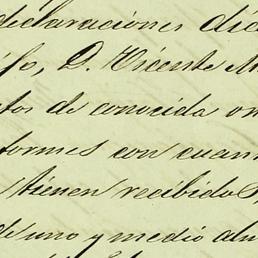 declaraciones dic
ifo, D. Vicente M
tos de conocida on
formes con cuan
tienen recibido
de uno y medio alm